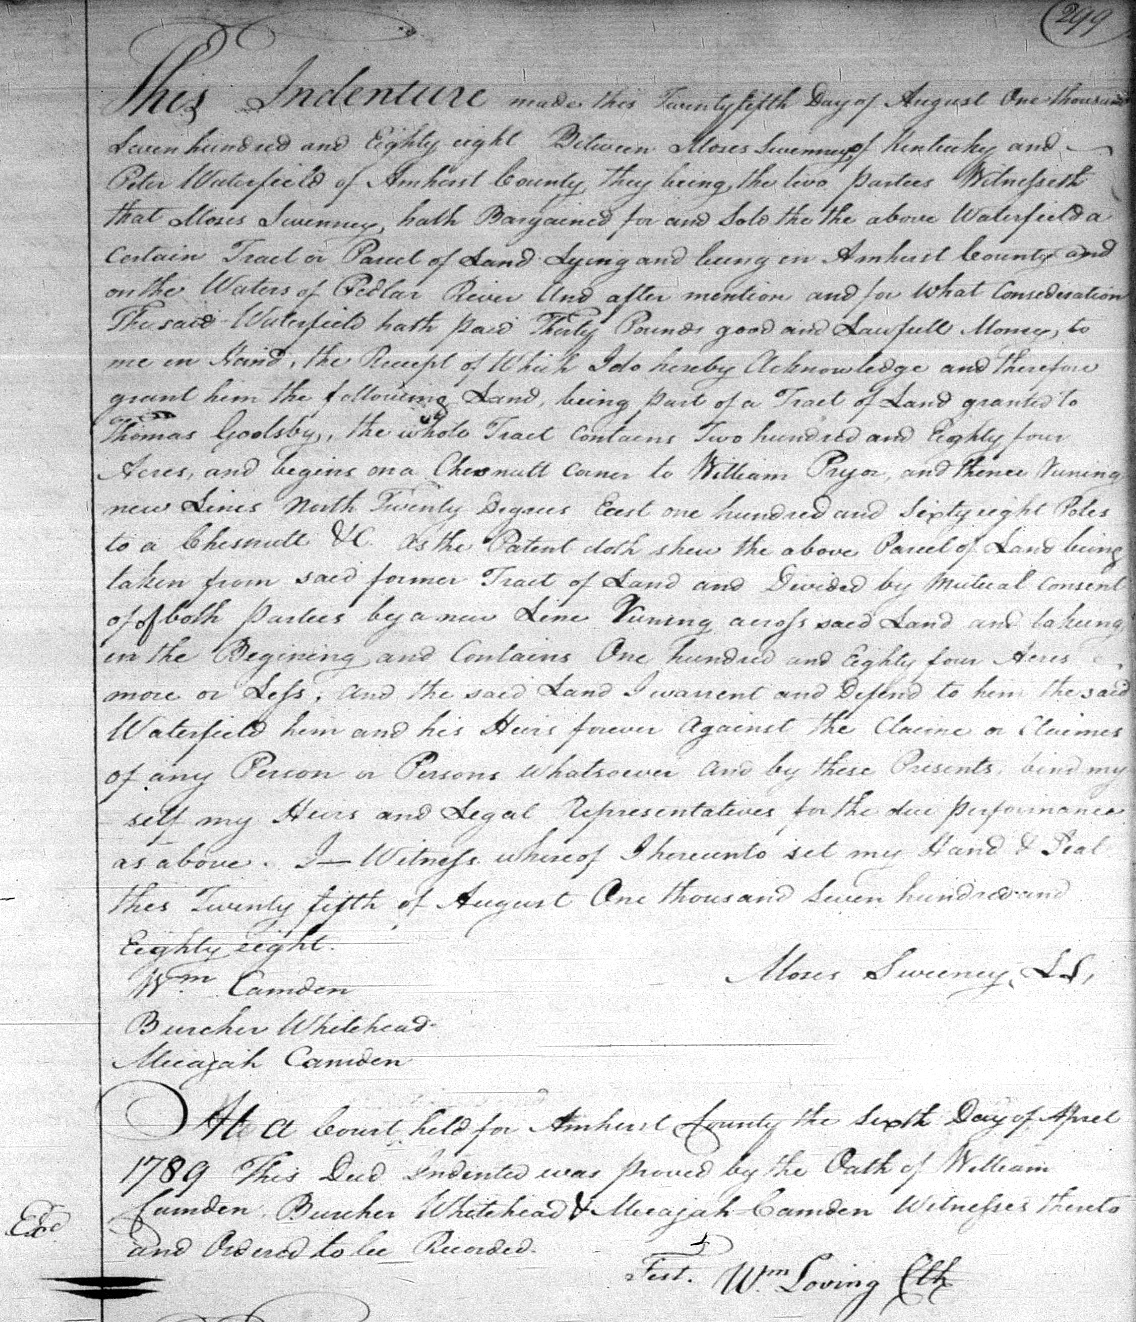 299
This Indenture made this Twenty fifth Day of August One thousand
Seven hundred and Eighty eight Between Moses Swenney of Kentucky and
Peter Waterfield of Amherst County, they being the two partees Witnesseth
that Moses Swenney, hath Bargained for and Sold the the above Waterfield a
Certain Tract or Parcel of Land Lying and being in Amherst County and
on the Waters of Pedlar River And after mention and for What Consideration
The said Waterfield hath paid Thirty Pounds good and Lawfull Money, to
me in Hand, the Receipt of Which I do hereby Acknowledge and therefore
grant him the following Land, being part of a Tract of Land granted to
Thomas Goolsby, the whole Tract Contains Two hundred and Eighty four
Acres, and begins on a Chesnutt Corner to William Pryor, and thence Runing
new Lines North Twenty Degrees East one hundred and Sixty eight Poles
to a Chesnutt &C. as the Patent doth shew the above Parcel of Land being
taken from said former Tract of Land and Divided by Mutual Consent
of of both Partees by a new Line Runing across said Land and takeing
in the Begining and Contains One hundred and Eighty four Acres
more or Less, and the said Land I warrent and Defend to him the said
Waterfield him and his Heirs forever against the Claime or Claimes
of any Person or Persons whatsoever and by these Presents, bind my
self my Heirs and Legal Representatives for the due performance
as above. I— Witness whereof I hereunto set my Hand & Seal
this Twenty fifth of August One thousand Seven hundred and
Eighty eight.
Moses Sweeney, LS,
Wm Camden
Burcher Whitehead
Micajah Camden
At a Court held for Amherst County the Sixth Day of Aprel
1789 This Deed Indented was proved by the Oath of William
Camden, Burcher Whitehead & Micajah Camden Witnesses thereto
Exd.
and Ordered to be Recorded.
Test. Wm Loving Clk